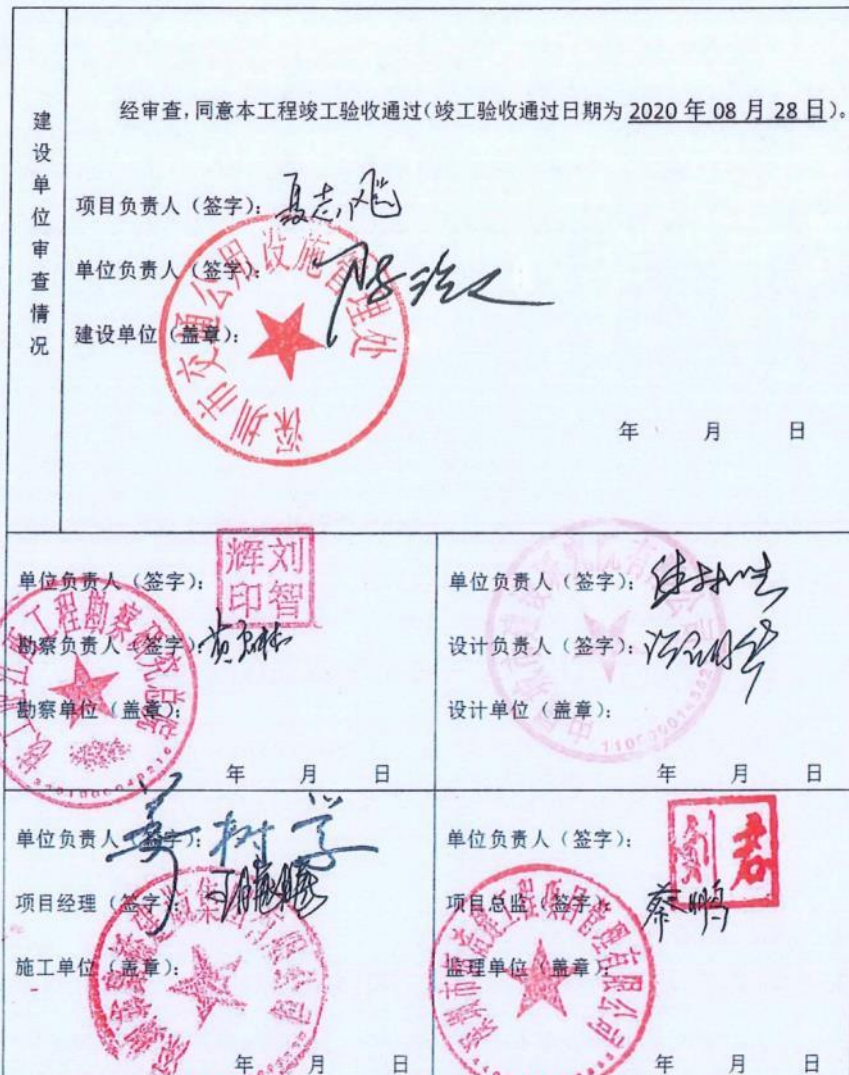 建设单位审查情况
经审查,同意本工程竣工验收通过(竣工验收通过日期为 2020 年 08 月 28 日)。
项目负责人(签字):
单位负责人(签字):
建设单位(盖章):
深圳市交通公用设施管理处
年 月 日
单位负责人(签字):
刘智辉印
勘察负责人(签字):
勘察单位(盖章):
年 月 日
单位负责人(签字):
设计负责人(签字):
设计单位(盖章):
年 月 日
单位负责人(签字):
树学
项目经理(签字):
施工单位(盖章):
年 月 日
单位负责人(签字):
项目总监(签字):
蔡鹏
监理单位(盖章):
年 月 日